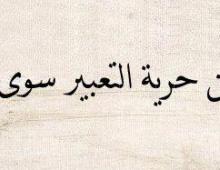 حرية التعبير سوى